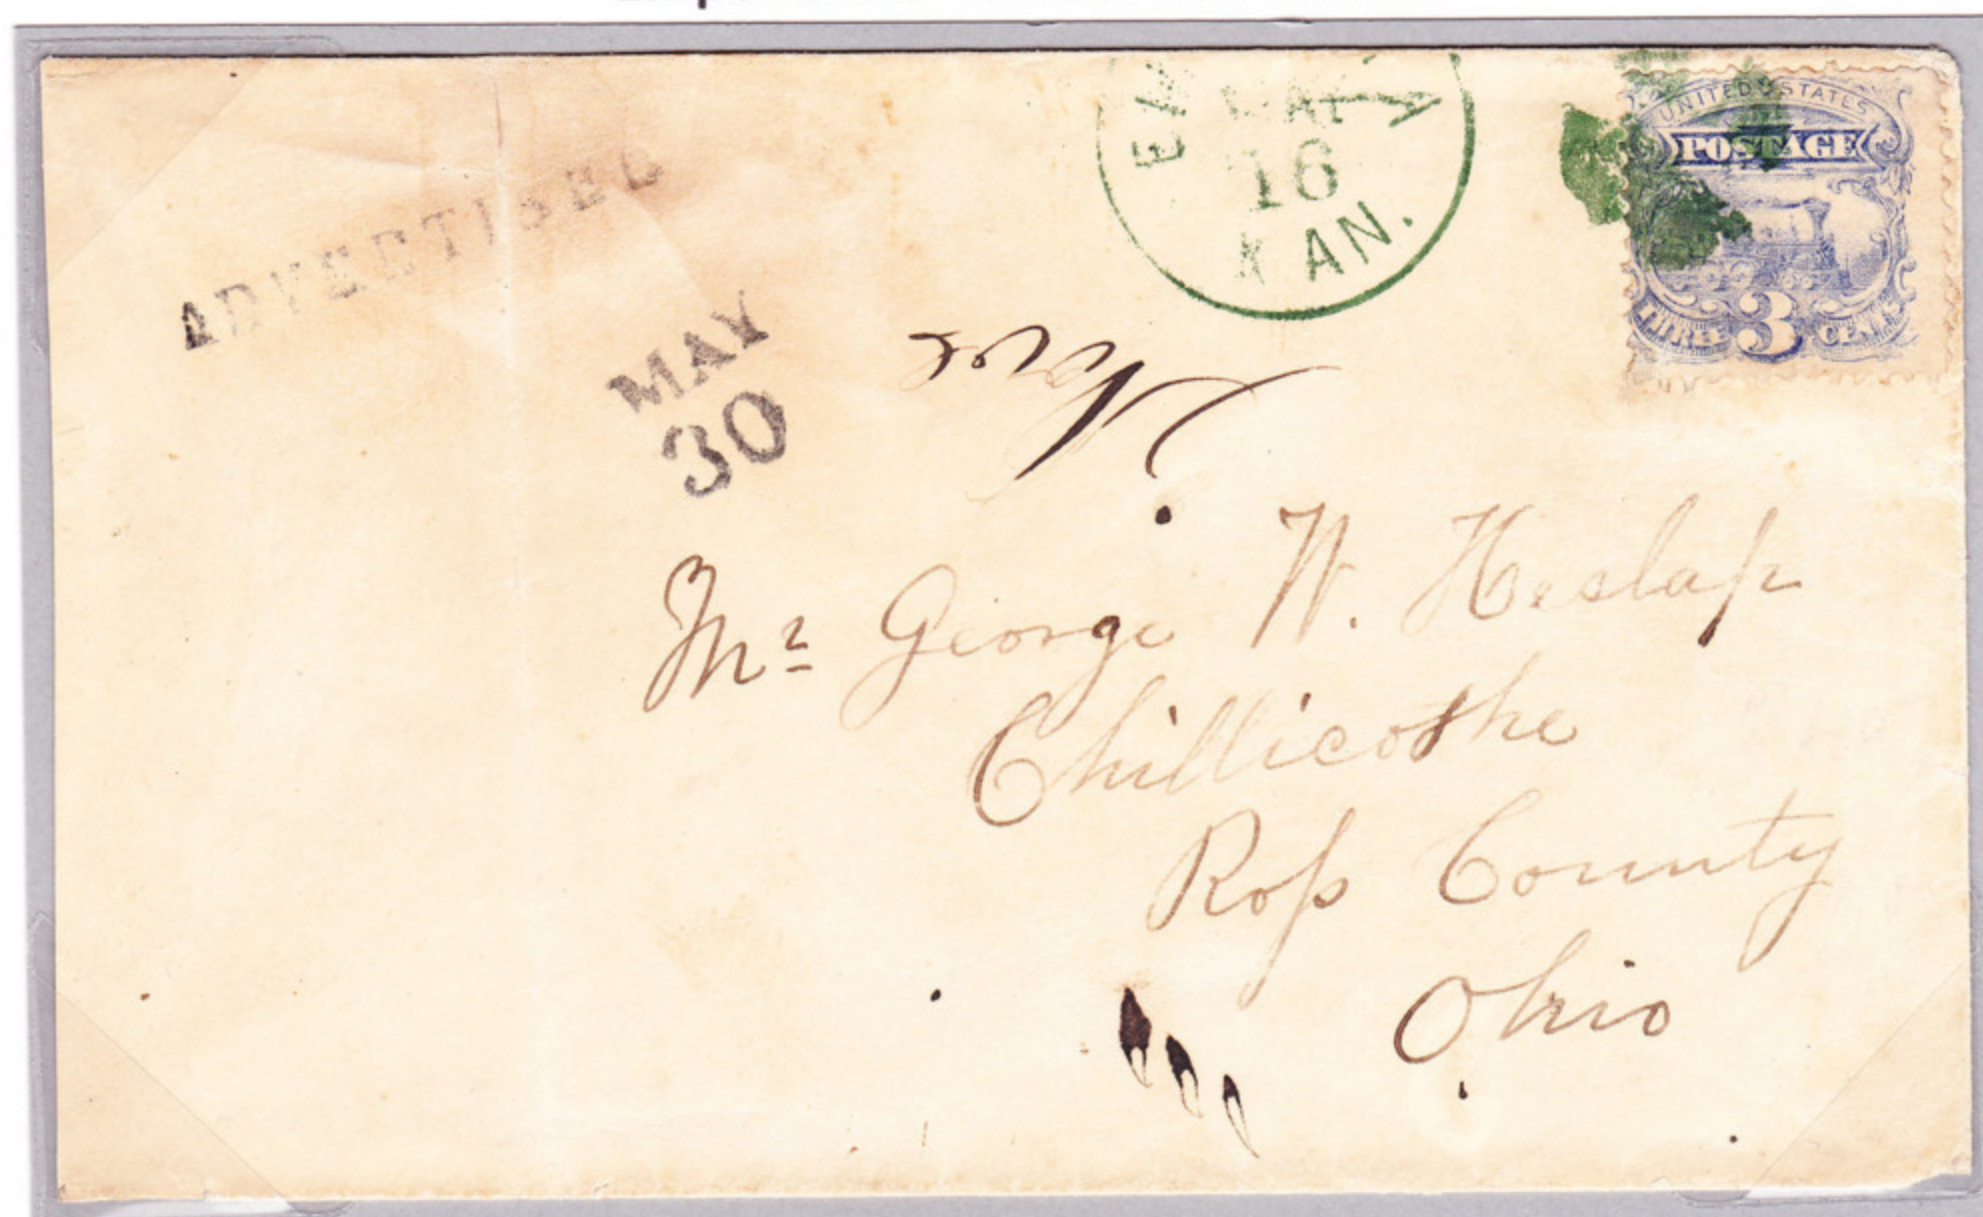 ADVERTISED
MAY
30
EM A
MAY
16
KAN.
UNITED STATES
POSTAGE
THREE 3 CENTS
Mr George W. Heslap
Chillicothe
Ross County
Ohio